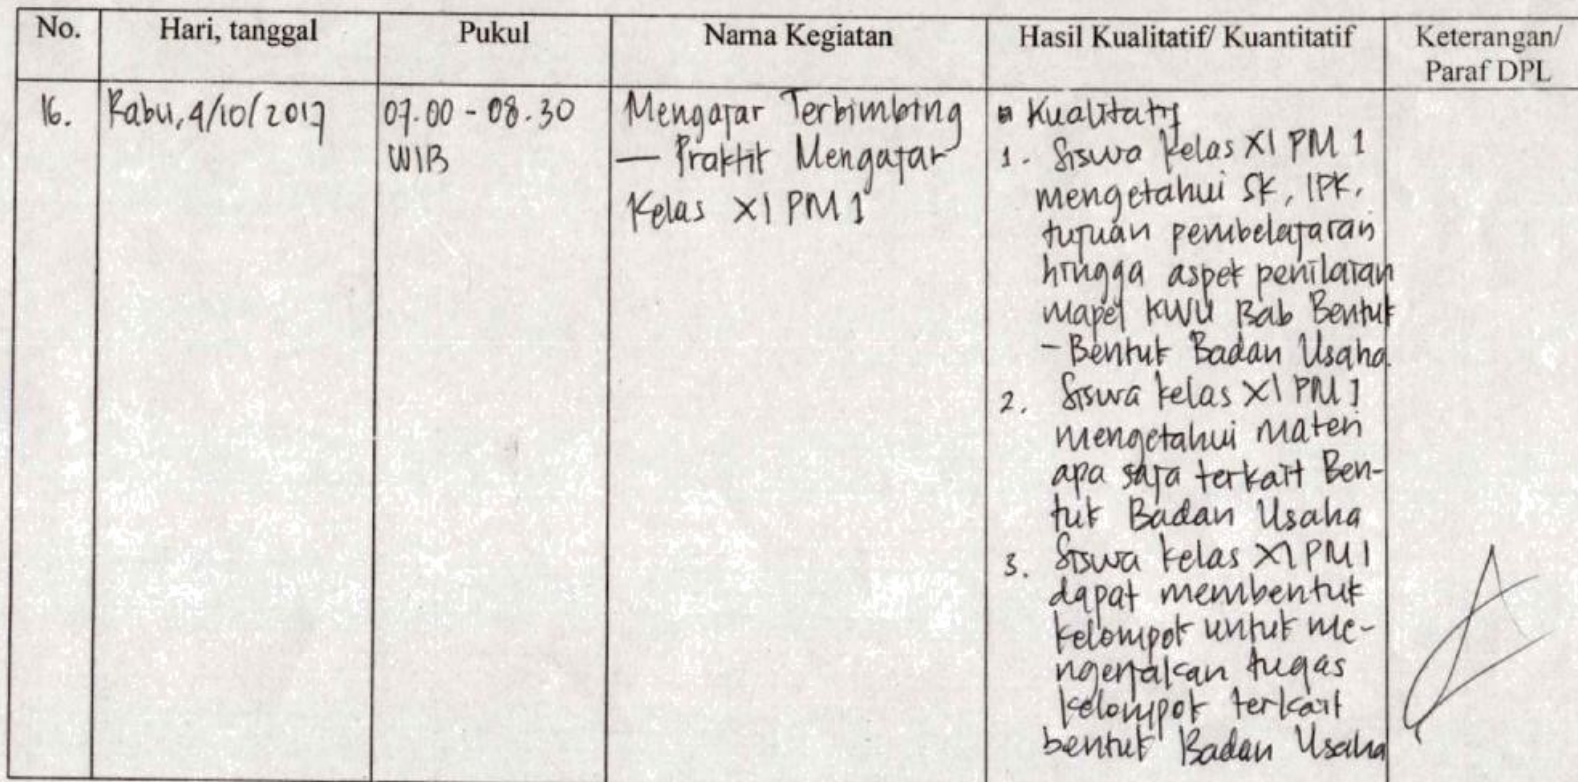 No. Hari, tanggal Pukul Nama Kegiatan Hasil Kualitatif/ Kuantitatif Keterangan/
Paraf DPL
16. Rabu, 4/10/2017 07.00 - 08.30
WIB
Mengajar Terbimbing
— Praktik Mengajar
Kelas XI PM 1
Kualitatif
1. Siswa kelas XI PM 1
mengetahui SK, IPK,
tujuan pembelajaran
hingga aspek penilaian
mapel KWU Bab Bentuk
- Bentuk Badan Usaha
2. Siswa kelas XI PM 1
mengetahui materi
apa saja terkait Ben-
tuk Badan Usaha
3. Siswa kelas XI PM 1
dapat membentuk
kelompok untuk me-
ngerjakan tugas
kelompok terkait
bentuk Badan Usaha